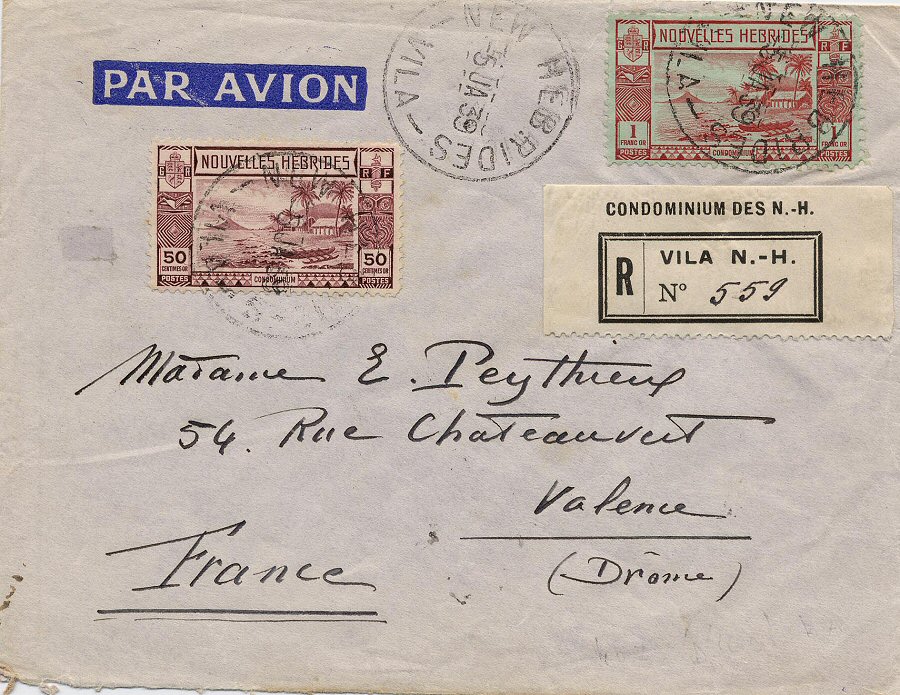 PAR AVION
NEW HEBRIDES
VILA
5 JA 39
NOUVELLES HEBRIDES
G R
R F
1 FRANC OR
1 FRANC OR
POSTES
CONDOMINIUM
POSTES
NOUVELLES HEBRIDES
G R
R F
50 CENTIMES OR
50 CENTIMES OR
POSTES
CONDOMINIUM
POSTES
CONDOMINIUM DES N.-H.
R
VILA N.-H.
N° 559
Madame E. Peythieux
54. Rue Chateauvert
Valence
(Drôme)
France